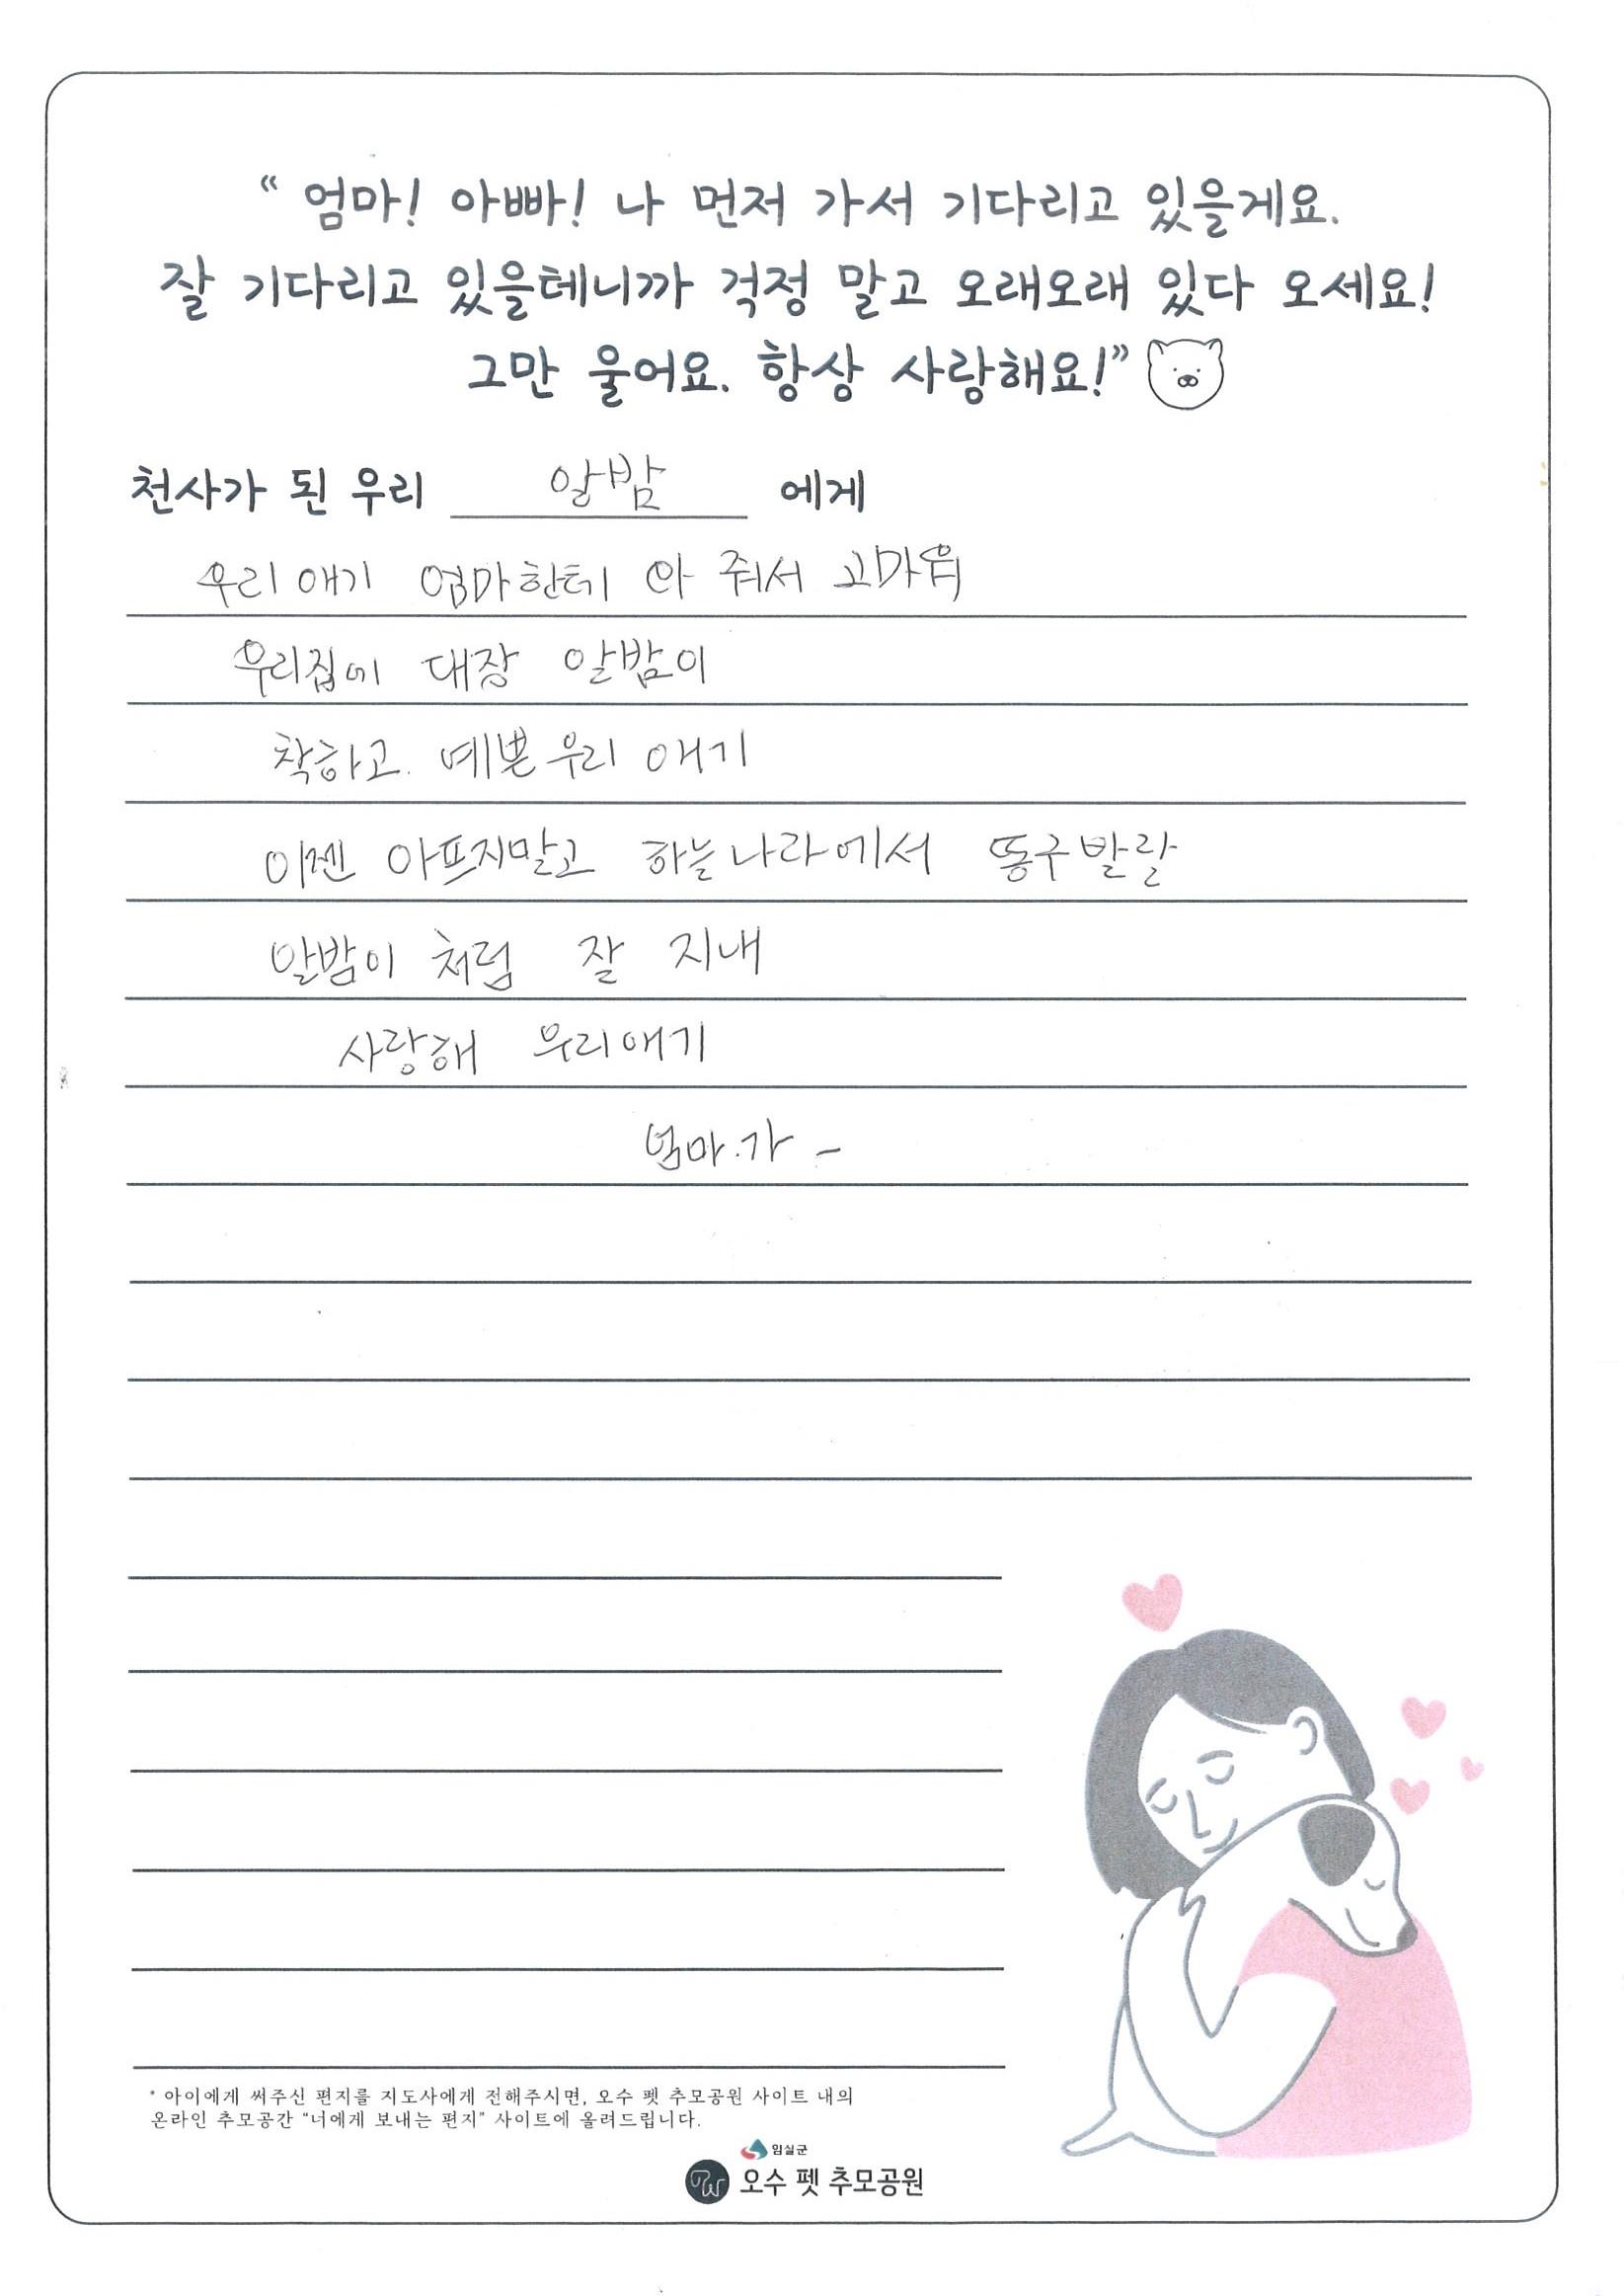 “ 엄마! 아빠! 나 먼저 가서 기다리고 있을게요.
잘 기다리고 있을테니까 걱정 말고 오래오래 있다 오세요!
그만 울어요. 항상 사랑해요!”
천사가 된 우리 알밤 에게
우리 애기 엄마한테 와 줘서 고마워
우리집에 대장 알밤이
착하고. 예쁜 우리 애기
이젠 아프지말고 하늘나라에서 똥구발랄
알밤이 처럼 잘 지내
사랑해 우리애기
엄마.가 -
* 아이에게 써주신 편지를 지도사에게 전해주시면, 오수 펫 추모공원 사이트 내의
온라인 추모공간 “너에게 보내는 편지” 사이트에 올려드립니다.
임실군
오수 펫 추모공원